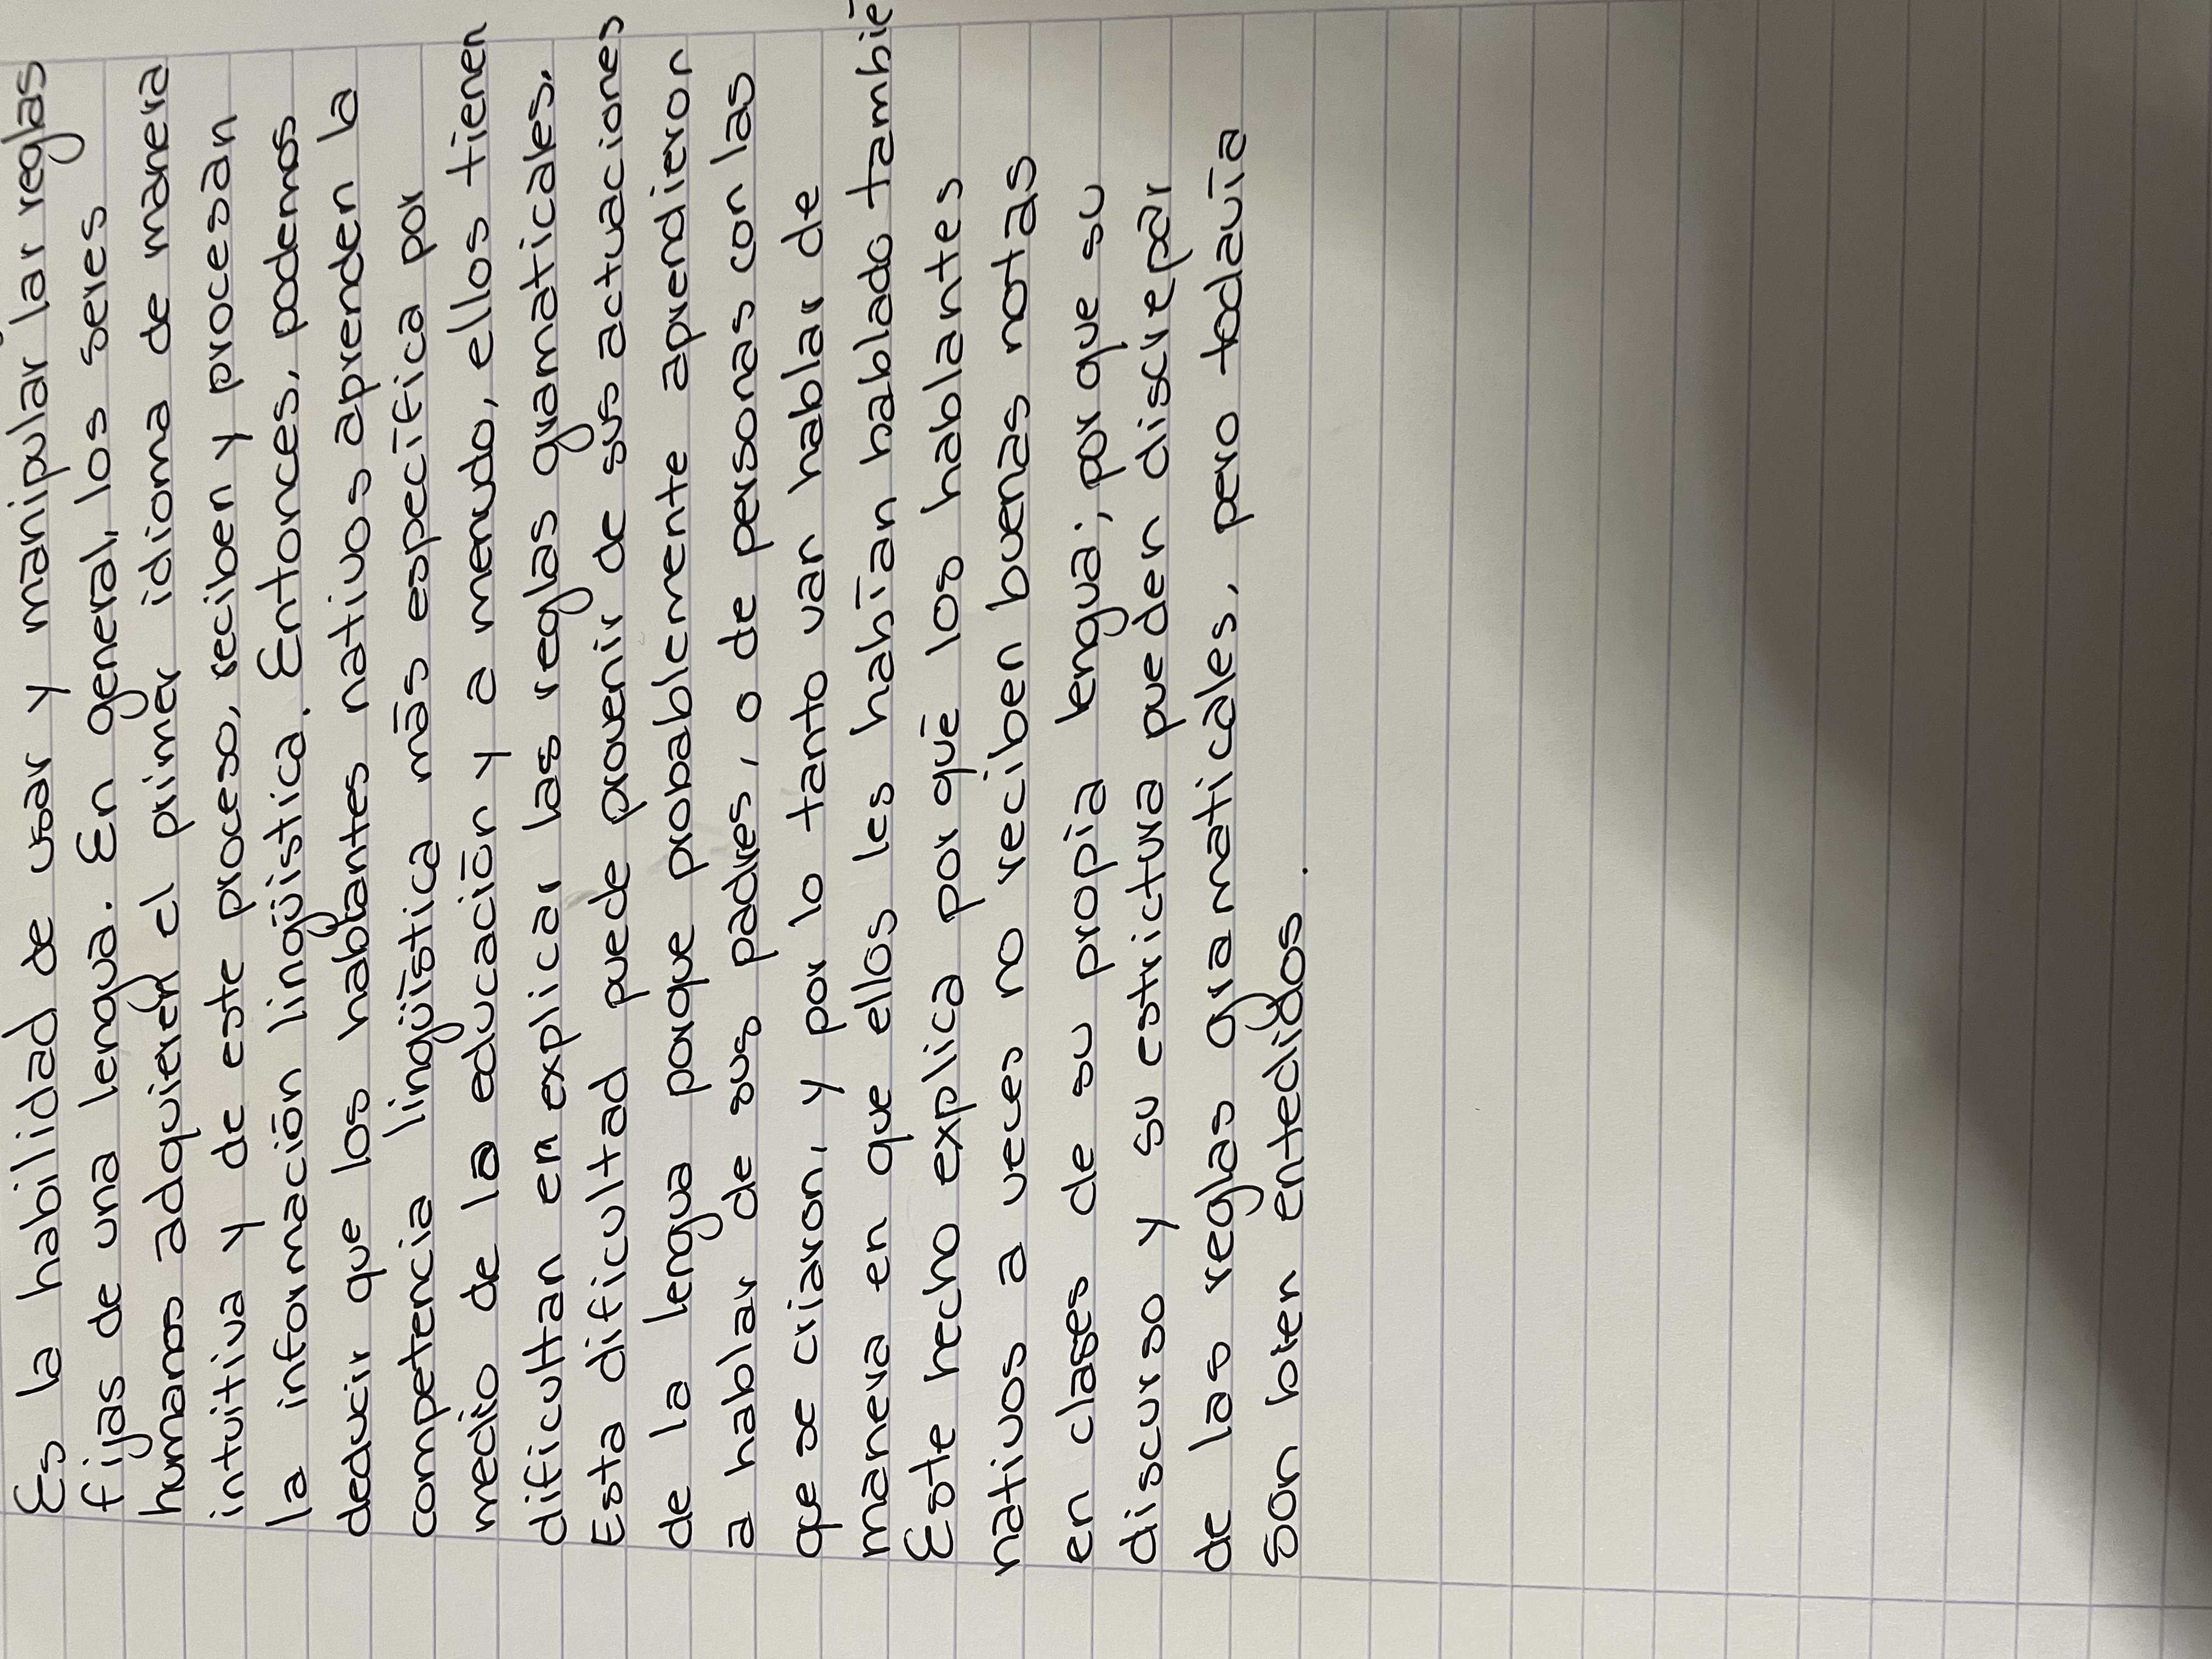 Es la habilidad de usar y manipular lar reglas
fijas de una lengua. En general, los seres
humanos adquieren el primer idioma de manera
intuitiva y de este proceso, reciben y procesan
la información lingüística. Entonces, podemos
deducir que los hablantes nativos aprenden la
competencia lingüística más específica por
medio de la educación y a menudo, ellos tienen
dificultan en explicar las reglas gramaticales.
Esta dificultad puede provenir de sus actuaciones
de la lengua porque probablemente aprendieron
a hablar de sus padres, o de personas con las
que se criaron, y por lo tanto van hablar de
manera en que ellos les habían hablado tambié
Este hecho explica por qué los hablantes
nativos a veces no reciben buenas notas
en clases de su propia lengua; porque su
discurso y su estrictura pueden discrepar
de las reglas gramaticales, pero todavía
son bien entedidos.